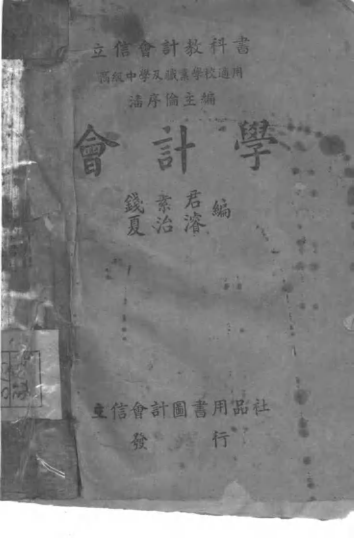 立信會計教科書
高級中學及職業學校適用
潘序倫主編
會計學
錢素君
夏治濬 編
立信會計圖書用品社
發行